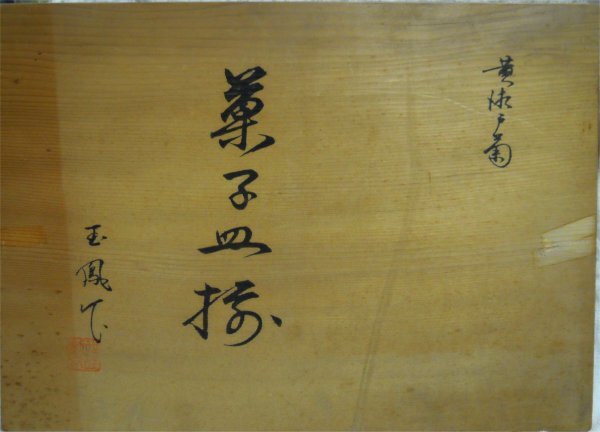 黄瀬戸菊
菓子皿揃
玉鳳作